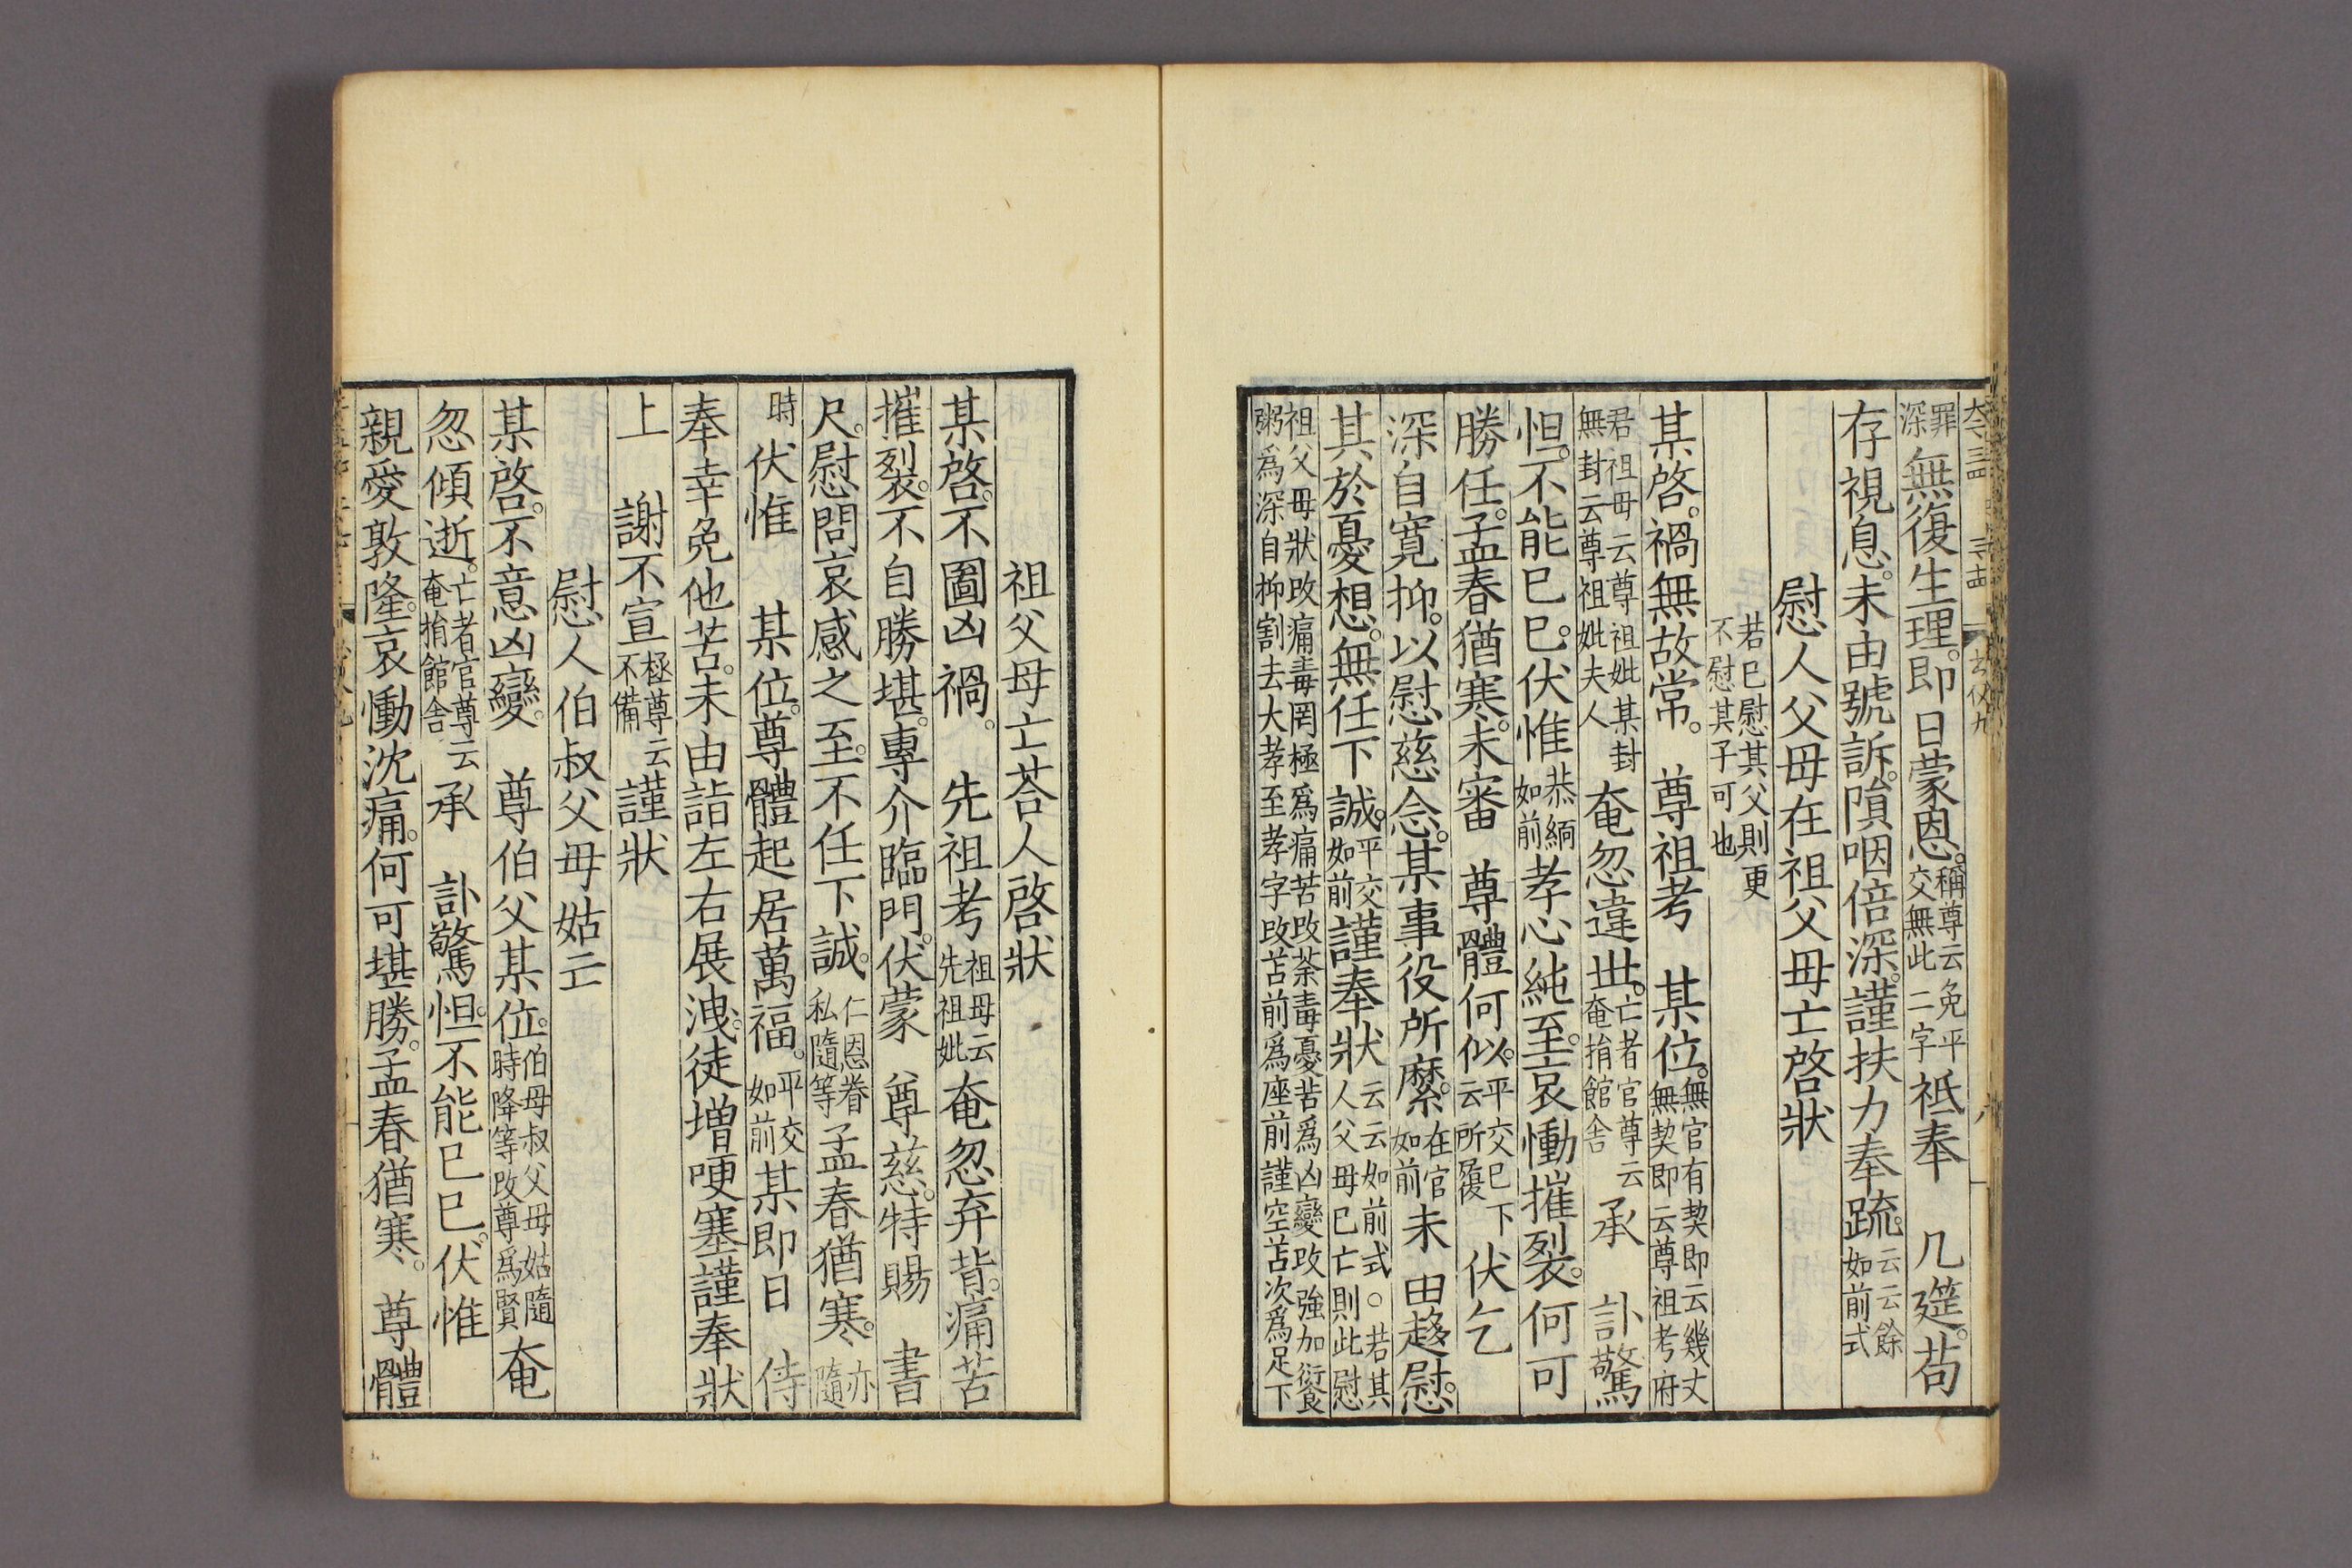 罪深無復生理。即日蒙恩。稱尊云免平交無此二字祗奉　几筵。苟
存視息。未由號訴。隕咽倍深。謹扶力奉疏。云云餘如前式
慰人父母在祖父母亡啓狀
若已慰其父則更不慰其子可也
某啓。禍無故常。　尊祖考　某位。無官有契即云幾丈無契即云尊祖考府
君祖母云尊祖妣某封無封云尊祖妣夫人奄忽違世。亡者官尊云奄捐館舍承　訃驚
怛。不能已已。伏惟恭緬如前孝心純至。哀慟摧裂。何可
勝任。孟春猶寒。未審　尊體何似。平交已下云所履伏乞
深自寬抑。以慰慈念。某事役所縻。在官如前未由趍慰。
其於憂想。無任下誠。平交如前謹奉狀云云如前式。○若其人父母已亡則此慰
祖父母狀改痛毒罔極爲痛苦改荼毒憂苦爲凶變改強加飱粥爲深自抑割去大孝至孝字改苫前爲座前謹空苫次爲足下
祖父母亡荅人啓狀
某啓。不圖凶禍。　先祖考祖母云先祖妣奄忽弃背。痛苦
摧裂。不自勝堪。專介臨門。伏蒙　尊慈。特賜　書
尺。慰問哀感之至。不任下誠。仁恩眷私隨等孟春猶寒。亦隨
時伏惟　某位。尊體起居萬福。平交如前某即日　侍
奉幸免他苦。未由詣左右展洩。徒增哽塞謹奉狀
上　謝不宣極尊云不備謹狀
慰人伯叔父母姑亡
某啓。不意凶變。　尊伯父某位。伯母叔父母姑隨時降等改尊爲賢奄
忽傾逝。亡者官尊云奄捐館舍承　訃驚怛。不能已已。伏惟
親愛敦隆。哀慟沈痛。何可堪勝。孟春猶寒。　尊體